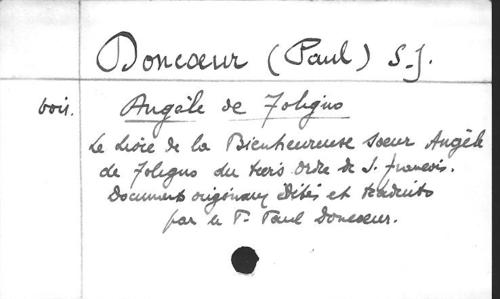 Doncœur (Paul) S.J.
voir. Angèle de Foligno
Le Livre de la Bienheureuse Sœur Angèle
de Foligno du tiers ordre de S. François.
Documents originaux édités et traduits
par le P. Paul Doncœur.